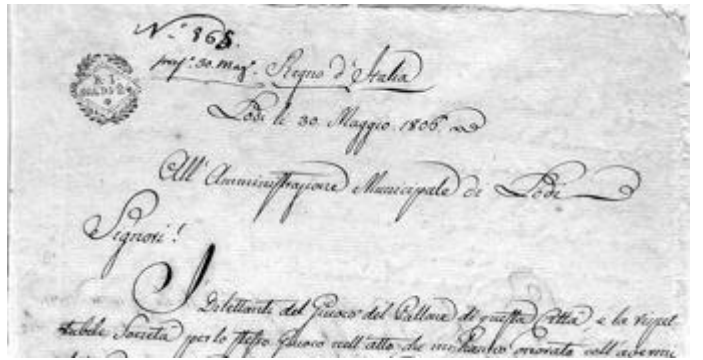 N.º 868.
30. Magº. Regno d'Italia
Lodi li 30. Maggio 1806.
All'Amministrazione Municipale di Lodi
Signori!
I Dilettanti del Giuoco del Pallone di questa Città, e la rispet
tabile Società per lo stesso Giuoco nell'atto che mi hanno onorato coll'